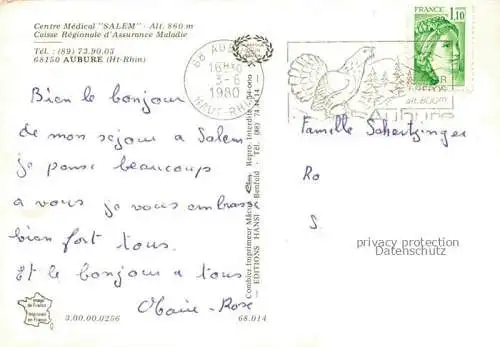 Centre Médical "SALEM" - Alt. 860 m
Caisse Régionale d'Assurance Maladie
Tél. : (89) 73.90.03
68150 AUBURE (Ht-Rhin)
68 AUBURE
16H
3-6
1980
HAUT-RHIN
FRANCE
1,10
Aubure
Bien le bonjour
de mon séjour a Salem
je pense beaucoup
a vous je vous embrasse
bien fort tous.
Et le bonjour a tous
Marie-Rose
Famille Schertzinger
Ro
S.
privacy protection
Datenschutz
Combier Imprimeur Mâcon
EDITIONS HANSI - Benfeld - Tél. (88) 74.14.14
Repro. Interdite
Image de France
Imprimée en France
3.00.00.0256
68.014